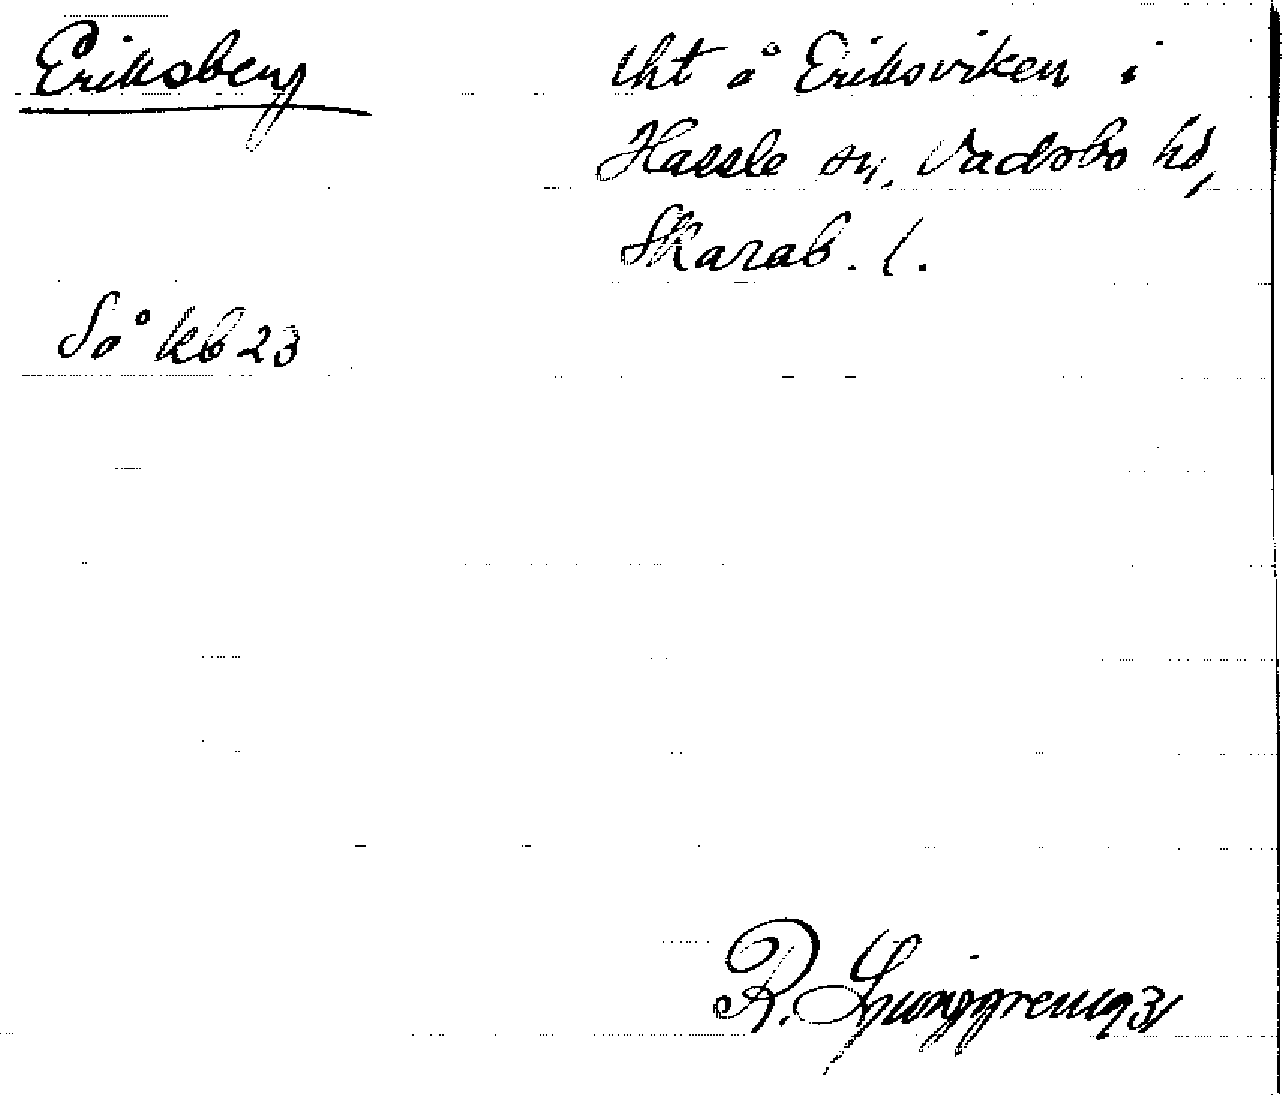 Eriksberg
lht å Eriksviken i
Hassle sn, Vadsbo hd,
Skarab. l.
Så kb 23
R. Ljunggren 1931